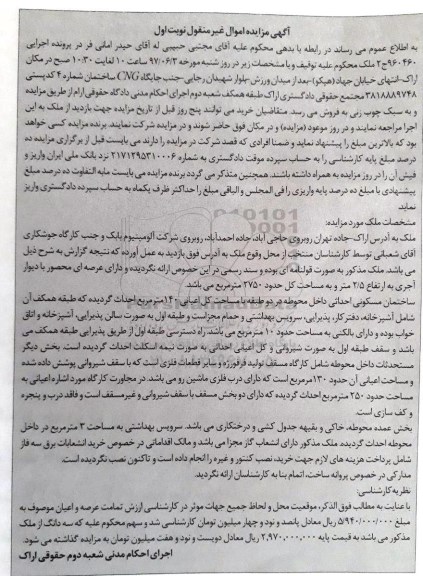 آگهی مزایده اموال غیر منقول نوبت اول
به اطلاع عموم می رساند در رابطه با بدهی محکوم علیه آقای مجتبی حبیبی له آقای حیدر امانی فر در پرونده اجرایی
۹۶۰۴۶۰ج۲ ملک محکوم علیه توقیف و با مشخصات زیر در روز شنبه مورخه ۹۷/۰۶/۳ ساعت ۱۰ لغایت ۱۰:۳۰ صبح در مکان
اراک-انتهای خیابان جهاد (هپکو)-بعد از میدان ورزش-بلوار شهیدان رجایی-جنب جایگاه CNG ساختمان شماره ۴ کدپستی
۳۸۱۸۸۸۹۷۴۸ مجتمع حقوقی دادگستری اراک طبقه همکف شعبه دوم اجرای احکام مدنی دادگاه حقوقی اراک از طریق مزایده
و به سبک چوب زنی به فروش می رسد. متقاضیان خرید می توانند پنج روز قبل از تاریخ مزایده جهت بازدید از ملک به این
اجرا مراجعه نمایند و در روز موعود (مزایده) و در مکان فوق حاضر شوند و در مزایده شرکت نمایند. برنده مزایده کسی خواهد
بود که بالاترین مبلغ را پیشنهاد نماید و ضمنا افرادی که قصد شرکت در مزایده را دارند می بایست قبل از برگزاری مزایده ده
درصد مبلغ پایه کارشناسی را به حساب سپرده موقت دادگستری به شماره ۲۱۷۱۲۹۵۳۱۰۰۰۶ نزد بانک ملی ایران واریز و
فیش آن را در روز مزایده به همراه داشته باشند. همچنین متذکر می گردد برنده مزایده می بایست مابه التفاوت ده درصد مبلغ
پیشنهادی با مبلغ ده درصد پایه واریزی را فی المجلس و الباقی مبلغ را حداکثر ظرف یکماه به حساب سپرده دادگستری واریز
نماید
مشخصات ملک مورد مزایده:
ملک به آدرس اراک-جاده تهران روبروی حاجی آباد، جاده احمدآباد، روبروی شرکت آلومینیوم بابک و جنب کارگاه جوشکاری
آقای شعبانی توسط کارشناسان منتخب از محل وقوع ملک به آدرس فوق بازدید به عمل آورده که نتیجه گزارش به شرح ذیل
می باشد. ملک مذکور به صورت قولنامه ای بوده و سند رسمی در این خصوص ارائه نگردیده و دارای عرصه ای محصور با دیوار
آجری به ارتفاع ۲/۵ متر و به مساحت کل حدود ۲۷۵۰ مترمربع می باشد.
ساختمان مسکونی احداثی داخل محوطه در دو طبقه با مساحت کل اعیانی ۱۴۰ مترمربع احداث گردیده که طبقه همکف آن
شامل آشپزخانه، دفتر کار، پذیرایی، سرویس بهداشتی و حمام مجزاست و طبقه اول به صورت سالن پذیرایی، آشپزخانه و اتاق
خواب بوده و دارای بالکنی به مساحت حدود ۱۰ مترمربع می باشد. راه دسترسی طبقه اول از طریق پذیرایی طبقه همکف می
باشد و سقف طبقه اول به صورت شیروانی و کل اعیانی احداثی به صورت نیمه اسکلت احداث گردیده است. بخش دیگر
مستحدثات داخل محوطه شامل کارگاه مسقف تولید فرفورژه و سایر قطعات فلزی است که با سقف شیروانی پوشش داده شده
و مساحت اعیانی آن حدود ۱۳۰ مترمربع است که دارای درب فلزی ماشین رو می باشد. در مجاورت کارگاه مورد اشاره اعیانی به
مساحت حدود ۲۵۰ مترمربع احداث گردیده که دارای دو بخش مسقف با سقف شیروانی و غیرمسقف است و فاقد درب و پنجره
و کف سازی است.
بخش عمده محوطه، خاکی و بقیهه جدول کشی و درختکاری می باشد. سرویس بهداشتی به مساحت ۳ مترمربع در داخل
محوطه احداث گردیده ملک مذکور دارای انشعاب گاز مجزا می باشد و مالک اقداماتی در خصوص خرید انشعابات برق سه فاز
شامل پرداخت هزینه های لازم جهت خرید، نصب کنتور و غیره را انجام داده است و تاکنون نصب نگردیده است.
مدارکی در خصوص پروانه ساخت، اتمام بنا به کارشناسان ارائه نگردید.
نظریه کارشناسی:
با عنایت به مطالب فوق الذکر، موقعیت محل و لحاظ جمیع جهات موثر در کارشناسی ارزش تمامت عرصه و اعیان موصوف به
مبلغ ۵/۹۴۰/۰۰۰/۰۰۰ ریال معادل پانصد و نود و چهار میلیون تومان کارشناسی شد و سهم محکوم علیه که سه دانگ از ملک
مذکور می باشد به قیمت پایه ۲,۹۷۰,۰۰۰,۰۰۰ ریال معادل دویست و نود و هفت میلیون تومان به مزایده گذاشته می شود.
اجرای احکام مدنی شعبه دوم حقوقی اراک